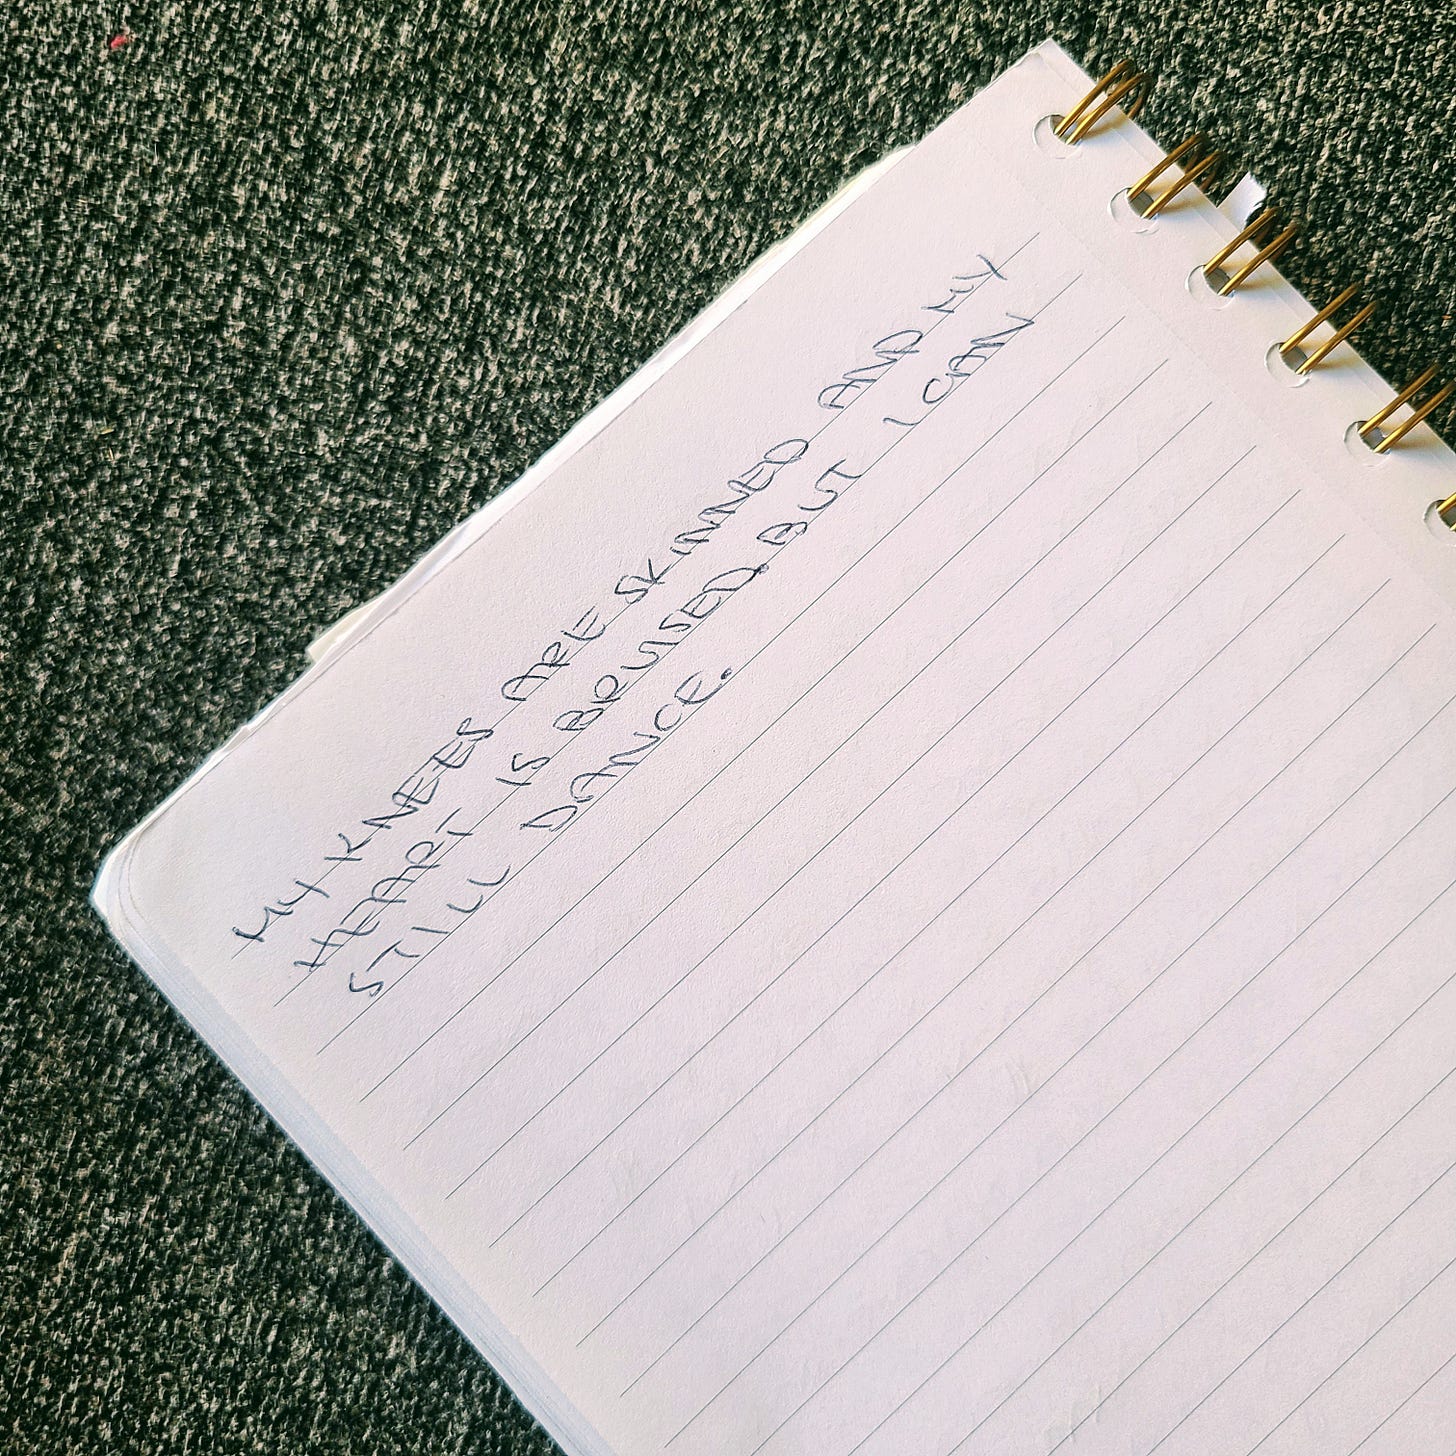 MY KNEES ARE SKINNED AND MY
HEART IS BRUISED. BUT I CAN
STILL DANCE.